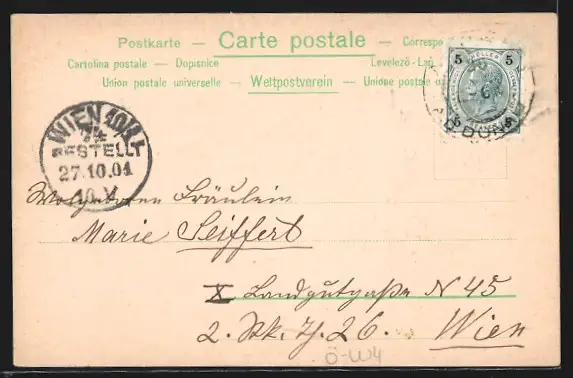 Postkarte — Carte postale — Correspo
Cartolina postale — Dopisnice Levelező-Lap
Union postale universelle — Weltpostverein — Unione postale u
5 5
5 5
WIEN 10/1
BESTELLT
27.10.01
10.V
Wohlgeboren Fräulein
Marie Seiffert
X Landgutgaße N 45
2. Stk. Th. 26. Wien
Ö-W4